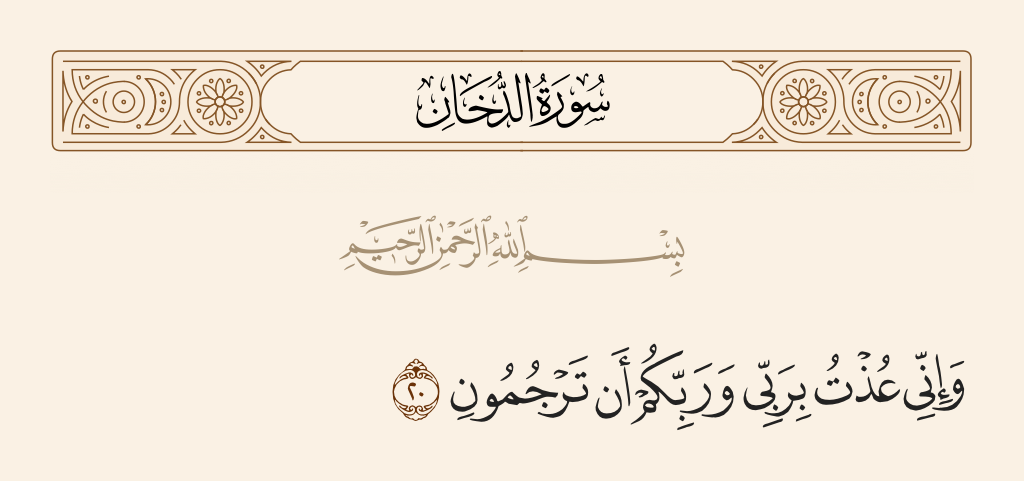 سُورَةُ الدُّخَانِ
بِسْمِ ٱللَّهِ ٱلرَّحْمَٰنِ ٱلرَّحِيمِ
وَإِنِّى عُذْتُ بِرَبِّى وَرَبِّكُمْ أَن تَرْجُمُونِ ٢٠